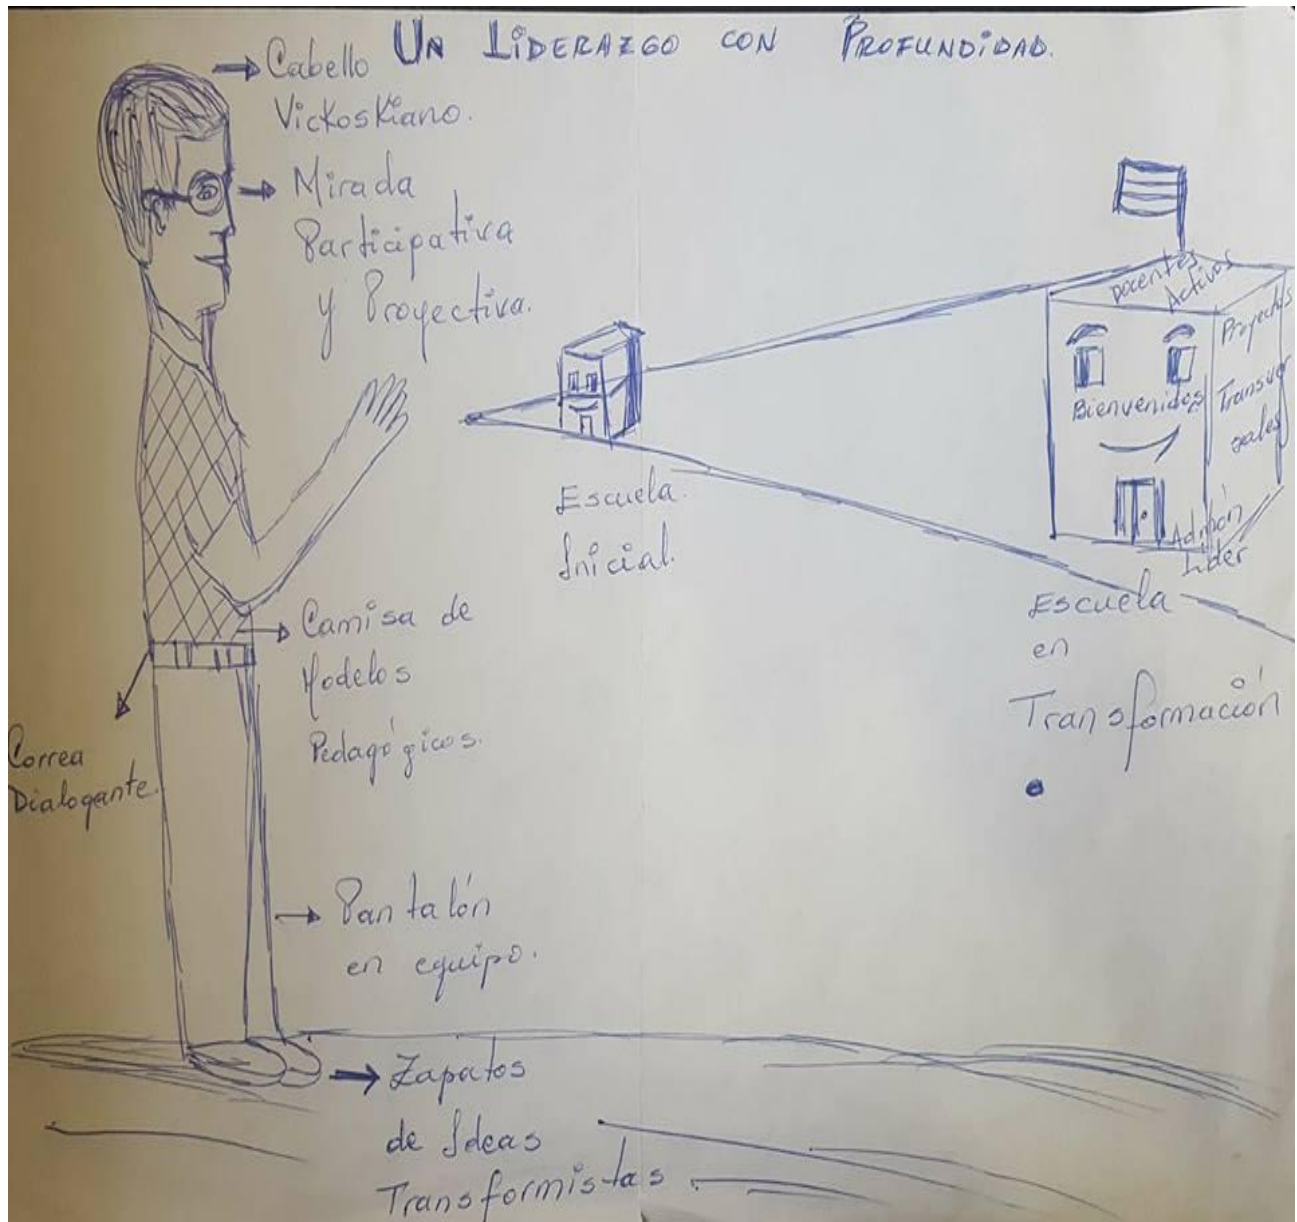 UN LIDERAZGO CON PROFUNDIDAD.
Cabello
Vickoskiano.
Mirada
Participativa
y Proyectiva.
Docentes
Activos
Proyectos
Transver
sales
Bienvenidos
Admón
Lider
Escuela
Inicial.
Escuela
en
Transformación
Camisa de
Modelos
Pedagógicos.
Correa
Dialogante.
Pantalón
en equipo.
Zapatos
de Ideas
Transformistas